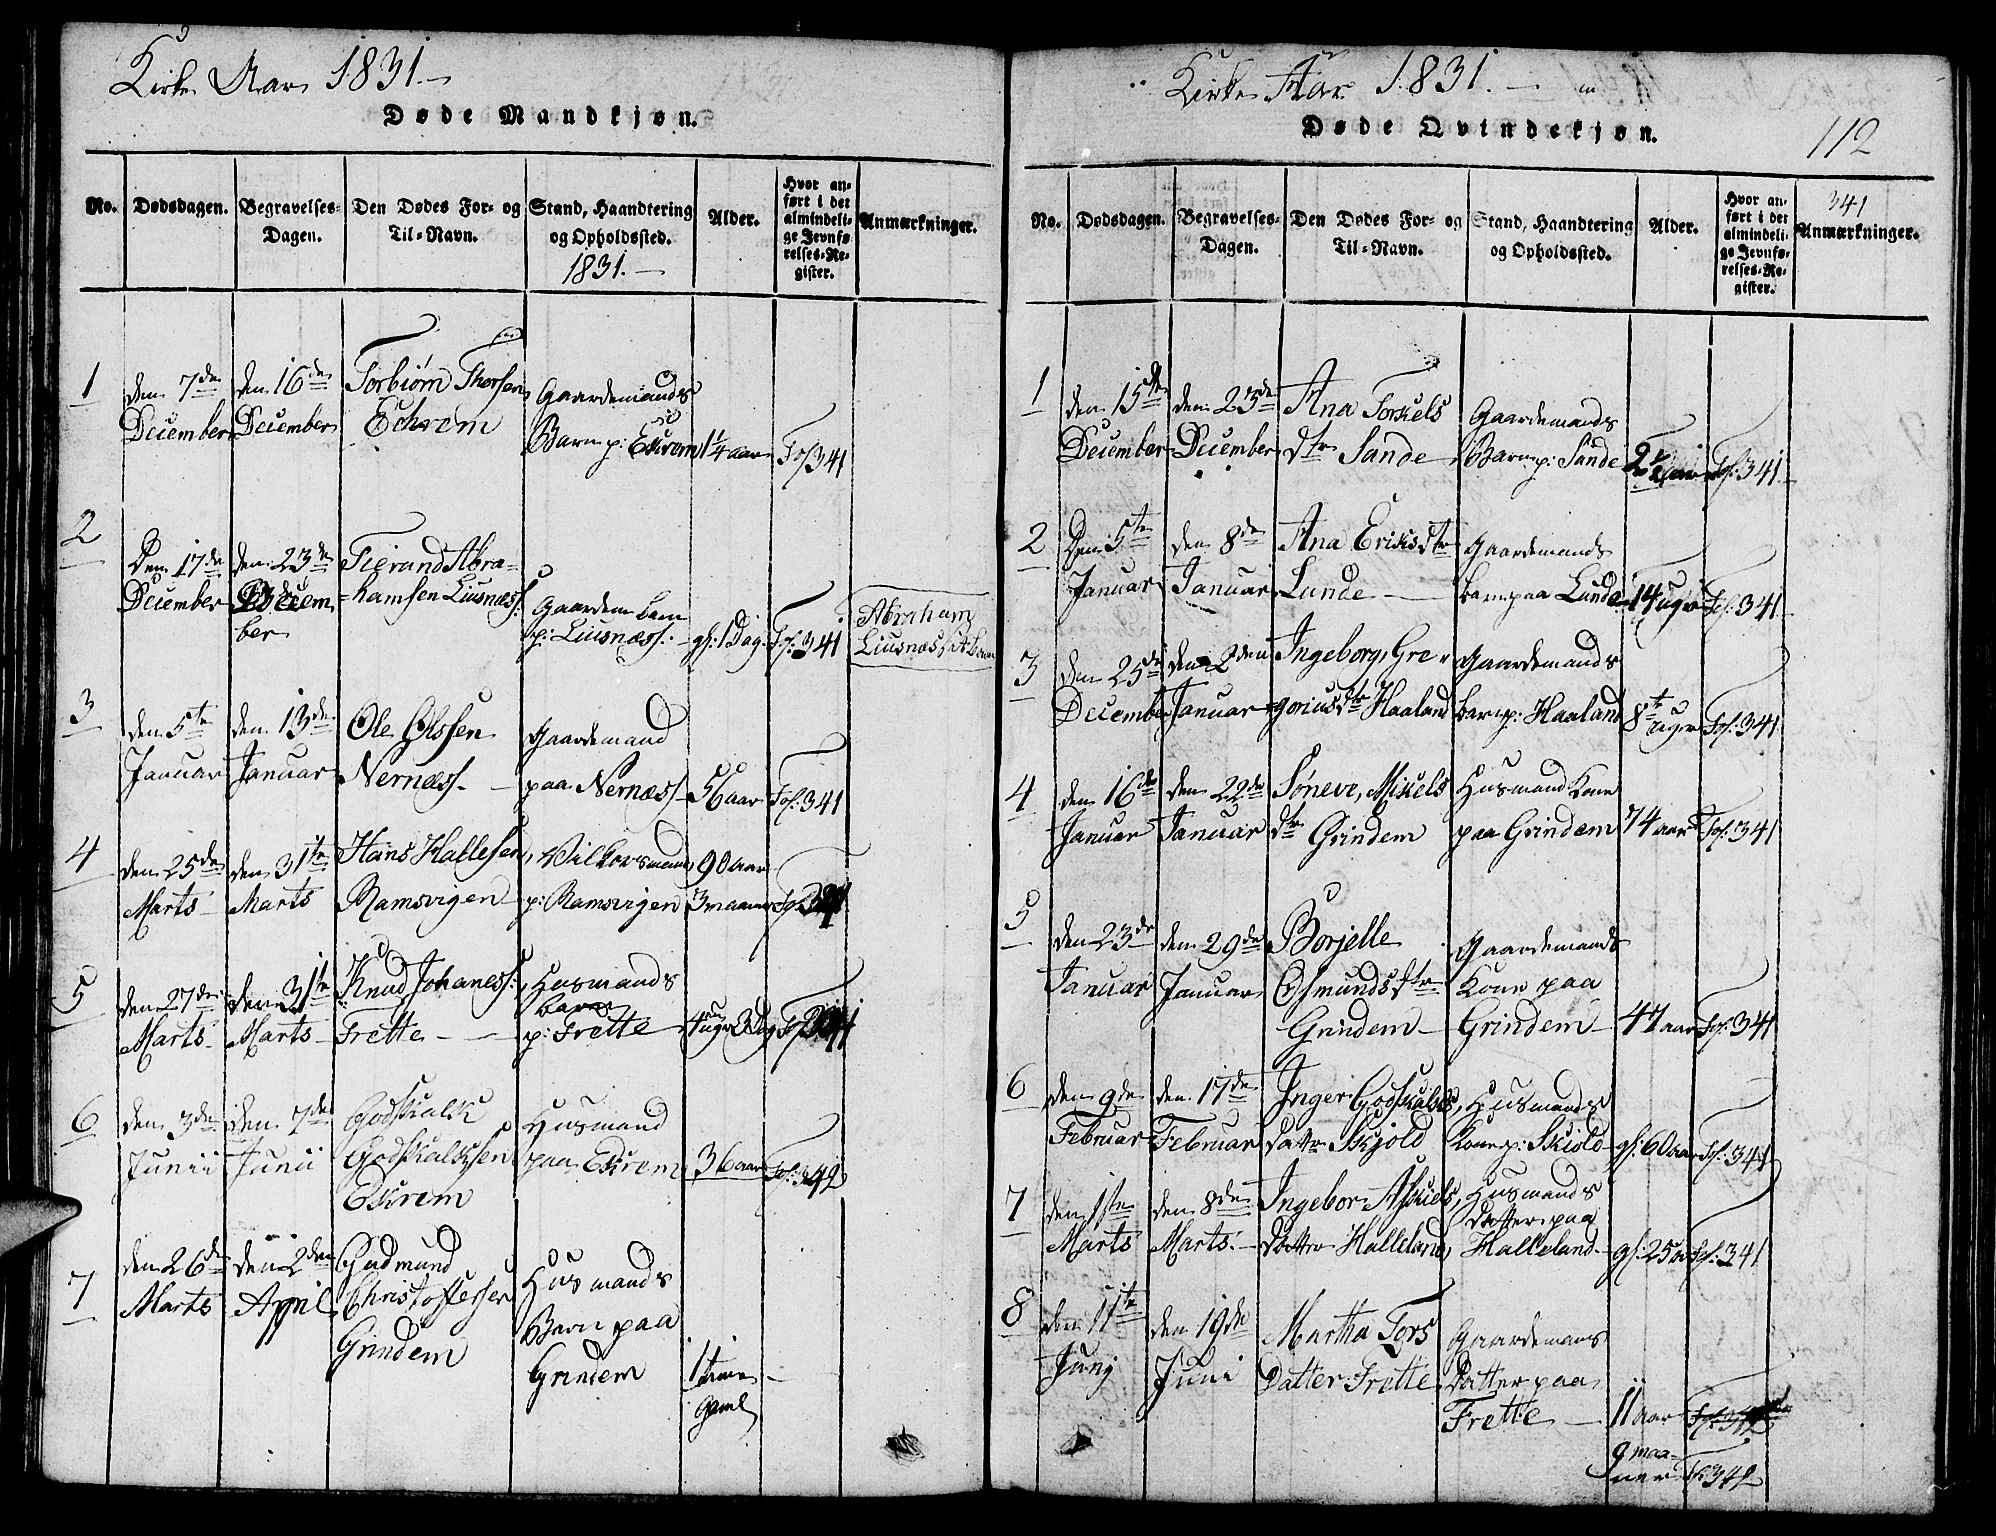 Kirke Aar 1831.
Døde Mandkjøn.
No.
Dødsdagen.
Begravelses-
Dagen.
Den Dødes For- og
Til-Navn.
Stand, Haandtering
og Opholdssted.
1831.
Alder.
Hvor an-
ført i det
almindeli-
ge Jevnfø-
relses-Re-
gister.
Anmærkninger.
1
den 7de
December
den 16de
December
Torbiørn Thorsen
Echrem
Gaardemands
Barn p: Ekrem
1 1/4 aar
Fol 341
2
Den 17de
December
den 23de
Decem
ber
Tierand Abra=
=hamsen Liusnæss:
Gaardem barn
p: Liusnæss:
gl: 1 Dag
Fol: 341
Abraham
Liusnæs
3
den 5te
Januar
den 13de
Januar
Ole Olssen
Nernæss
Gaardemand
paa Nernæss
56 aar
Fol: 341
4
den 25de
Marts
den 31te
Marts
Hans Hallesen
Ramsvigen
p: Ramsvigen
90 aar
3 maaner
5
den 27de
Marts
den 31te
Marts
Knud Johaness:
Frette
Husmands
barn
p: Frette
4 uger 3 Dag
6
den 3de
Junii
den 7de
Junii
Godskalk
Godskalksen
Ekrem
Husmand
paa Ekrem
36 aar
Fol: 342
7
den 26de
Marts
den 2den
April
Gudmund
Christoffersen
Grindem
Husmands
Barn paa
Grindem
1 time
gaml
Kirke Aar 1831.
Døde Qvindekjøn.
112
No.
Dødsdagen.
Begravelses-
Dagen.
Den Dødes For- og
Til-Navn.
Stand, Haandtering
og Opholdssted.
Alder.
Hvor an-
ført i det
almindeli-
ge Jevnfø-
relses-Re-
gister.
341
Anmærkninger.
1
den 15de
December
den 25de
December
Ana Torkels
dtr Sande
Gaardemands
Barn p: Sande
Fol: 341
2
Den 5te
Januar
den 8de
Januar
Ana Eriksdtr
Lunde
Gaardemands
barn paa Lunde
14 uger
Fol: 341
3
den 25de
December
den 2den
Januar
Ingeborg, Gre
goriusdtr Haaland
Gaardemands
barn p: Haaland
8te
uger
Fol: 341
4
den 16de
Januar
den 22de
Januar
Søneve, Mikels
dtr Grindem
Husmand Kone
paa Grindem
74 aar
Fol: 341
5
den 23de
Januar
den 29de
Januar
Borjelle
Osmundsdtr
Grindem
Gaardemands
Kone paa
Grindem
47 aar
Fol: 341
6
den 9de
Februar
den 17de
Februar
Inger Godskalks
Datter Skjold
Husmands
Kone p: Skiold
gl: 60 aar
Fol: 341
7
den 1ste
Marts
den 8de
Marts
Ingebor Askiels
Datter Halleland
Husmands
Datter paa
Halleland
gl: 25 aar
Fol: 341
8
den 11te
Junj
den 19de
Juni
Martha Tors
Datter Frette
Gaardemans
Datter paa
Frette
11 aar
9 maa-
ner
Fol: 342